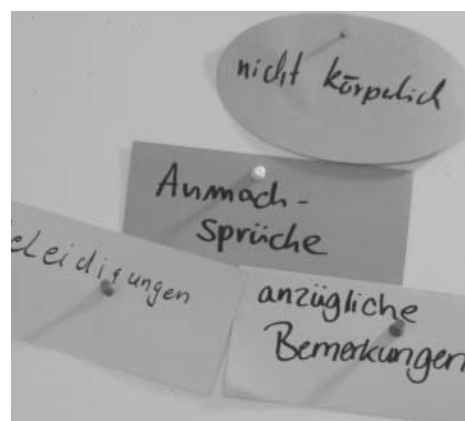 nicht körperlich
Anmach-
sprüche
eleidigungen
anzügliche
Bemerkungen